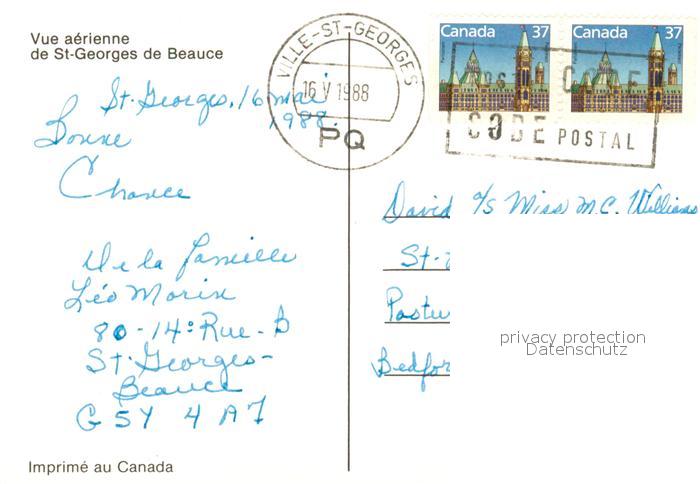 Vue aérienne
de St-Georges de Beauce
St. Georges, 16 mai
1988.
Bonne
Chance
De la famille
Léo Morin
80-14e Rue-B
St-Georges-
Beauce
G5Y 4A7
Imprimé au Canada
VILLE-ST-GEORGES
16 V 1988
PQ
Canada 37
Canada 37
POSTAL CODE
CODE POSTAL
David a/s Miss M.C. Williams
St-
Pastu
Bedfor
privacy protection
Datenschutz